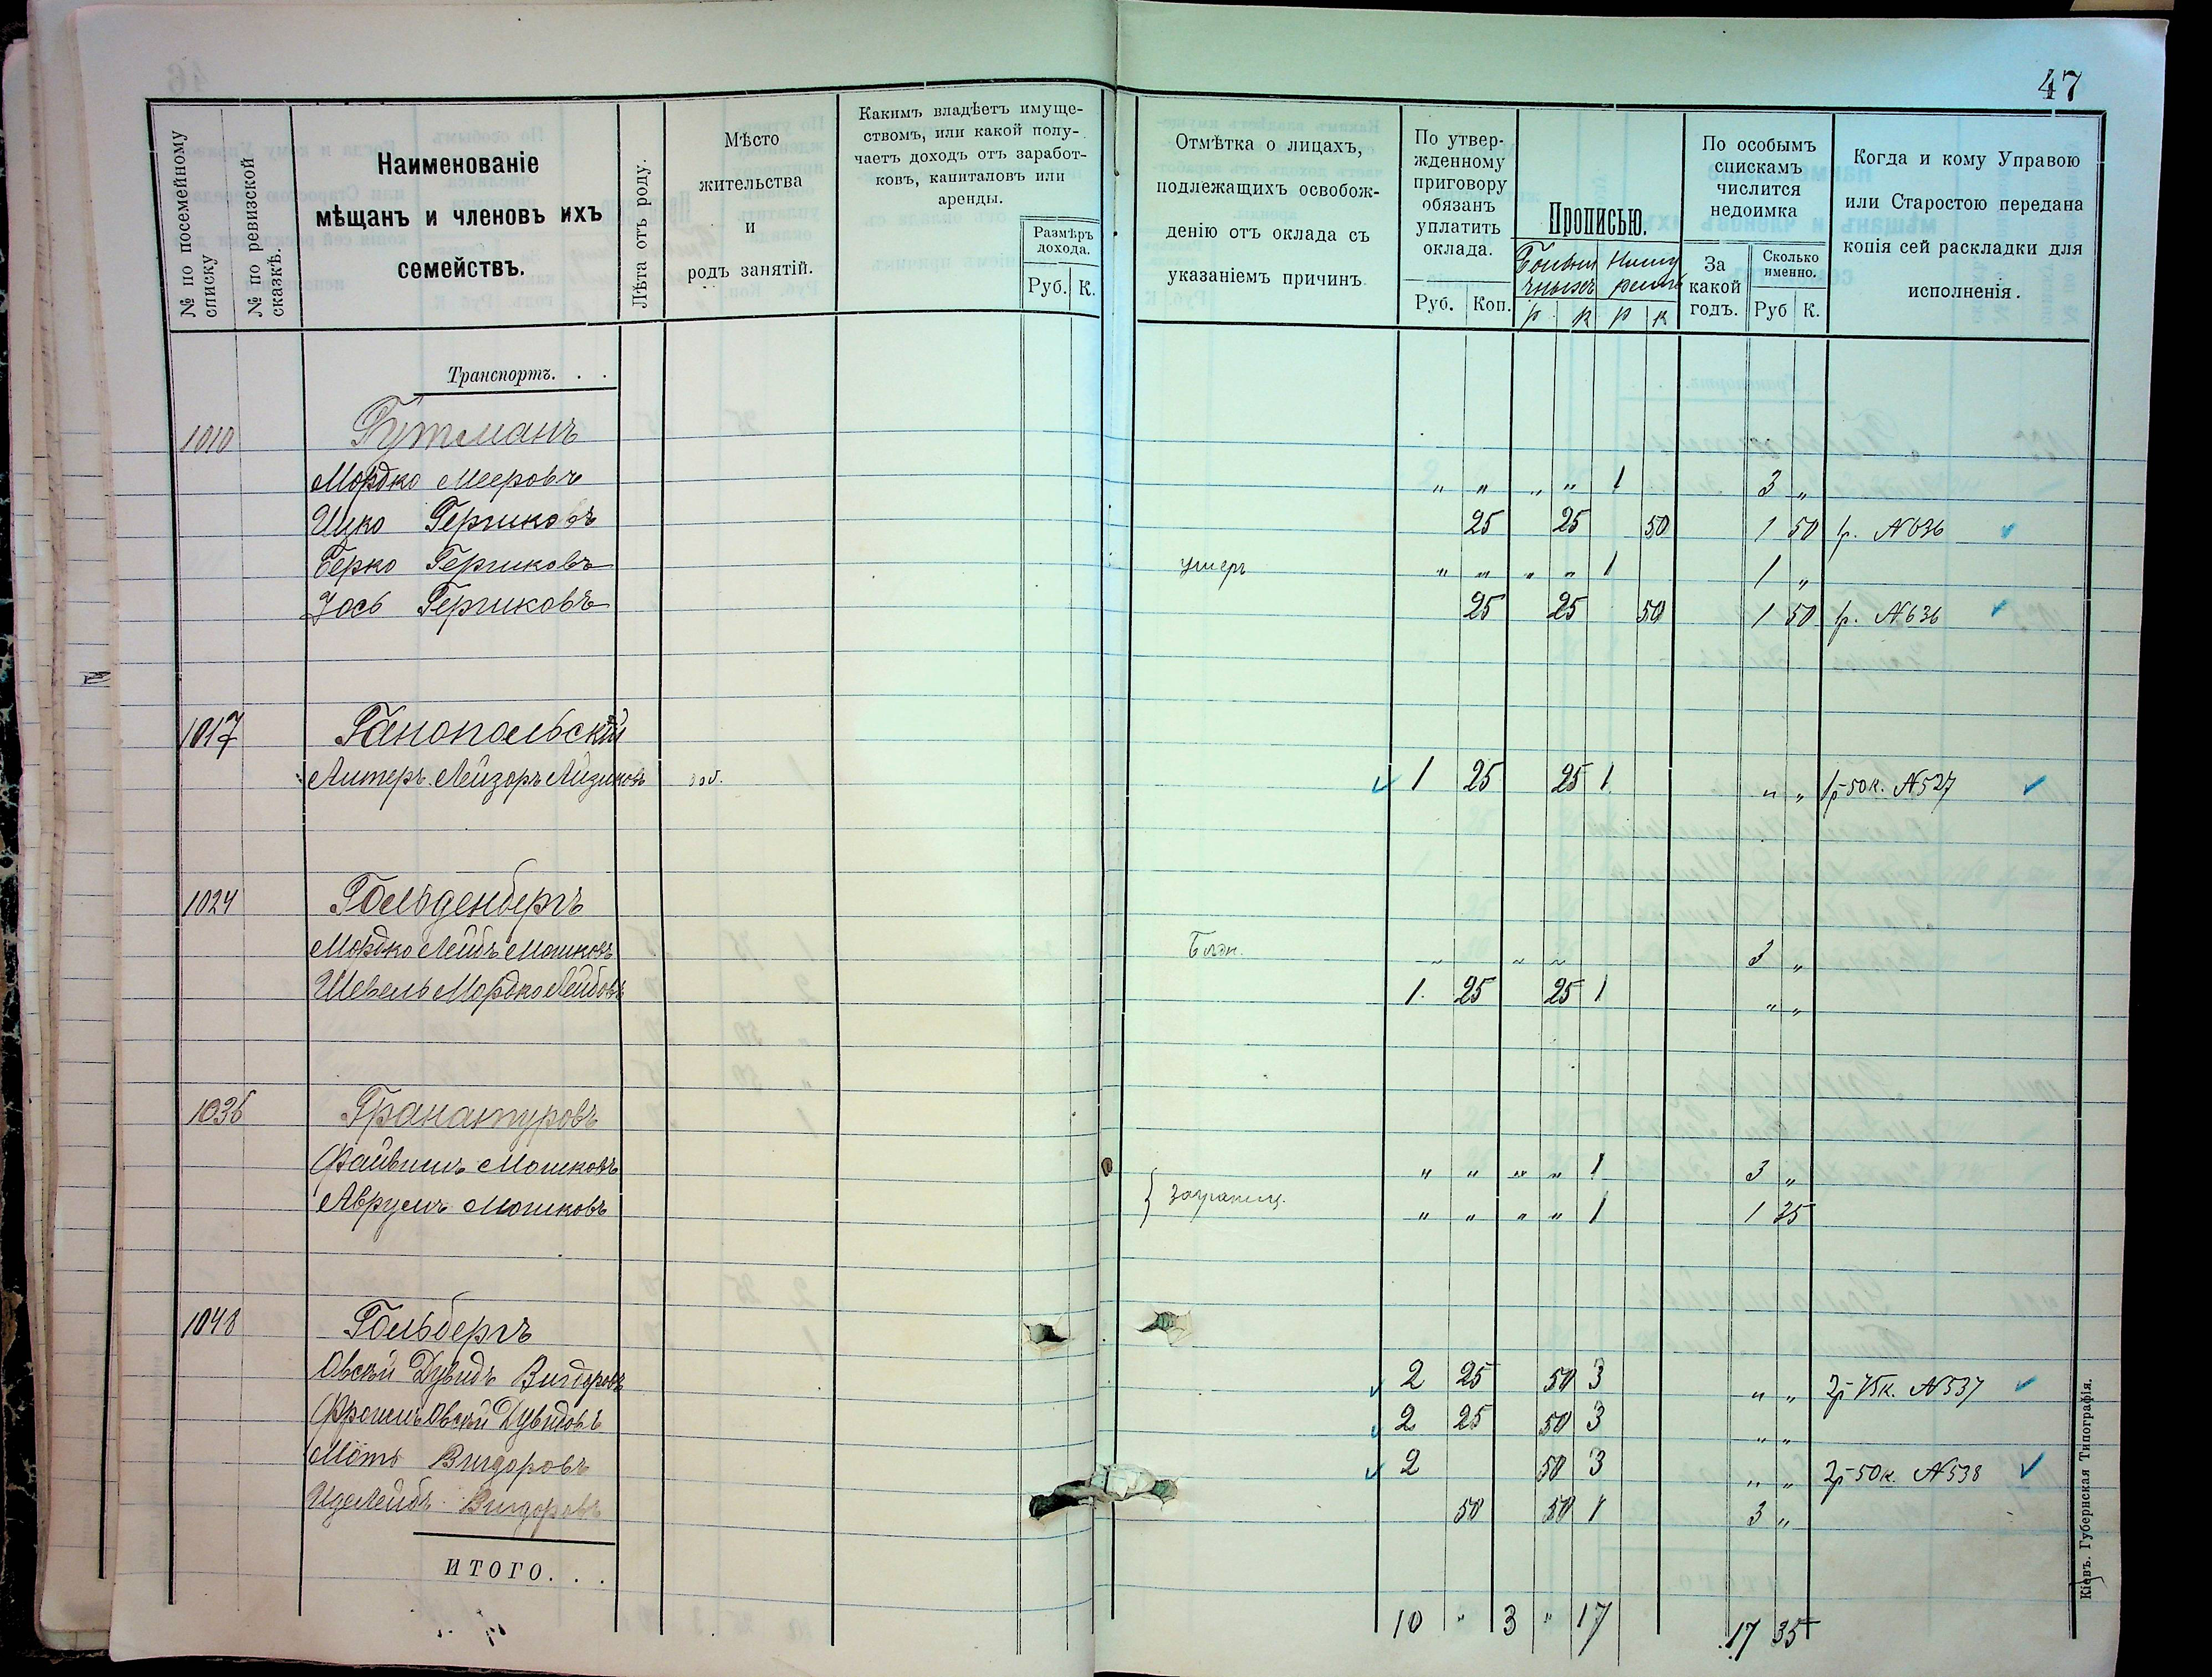 47
№ по посемейному списку
№ по ревизской сказкѣ.
Наименованіе мѣщанъ и членовъ ихъ семействъ.
Лѣта отъ роду.
Мѣсто жительства и родъ занятій.
Какимъ владѣетъ имуще-
ствомъ, или какой полу-
чаетъ доходъ отъ заработ-
ковъ, капиталовъ или
аренды.
Размѣръ дохода.
Руб. К.
Отмѣтка о лицахъ,
подлежащихъ освобож-
денію отъ оклада съ
указаніемъ причинъ
По утвер-
жденному
приговору
обязанъ
уплатить
оклада.
Руб. Коп.
Прописью.
р к р к
По особымъ
спискамъ
числится
недоимка
За какой годъ.
Сколько именно.
Руб К.
Когда и кому Управою
или Старостою передана
копія сей раскладки для
исполненія.
Транспортъ. . .
1010 Гутманъ
Мордко Мееровъ " " " " 1 3 "
Ицко Гершковъ 25 25 50 1 50 р. N 636
Берко Гершковъ умеръ " " " " 1 1 "
Іось Гершковъ 25 25 50 1 50 р. N 636
1017 Ганопольскій
Алтеръ Лейзоръ Айзиковъ 1 25 25 1 " " 1р 50к. N 527
1024 Гольденбергъ
Мордко Лейбъ Мошковъ " " " 3 "
Шевель Мордко Лейбовъ 1 25 25 1 " "
1036 Гранатуровъ
Файвишъ Мошковъ " " " " 1 3 "
Аврумъ Мошковъ заграниц. " " " " 1 1 35
1048 Гольбергъ
Овсѣй Дувидъ Вигдоровъ 2 25 50 3 " " 2р 75к. N 537
Фроимъ Овсѣй Дувидовъ 2 25 50 3 " "
Мотъ Вигдоровъ 2 50 3 " " 2р 50к N 538
Иделейбъ Вигдоровъ 50 50 1 3 "
ИТОГО. . .
10 " 3 " 17 17 35
Кіевъ. Губернская Типографія.